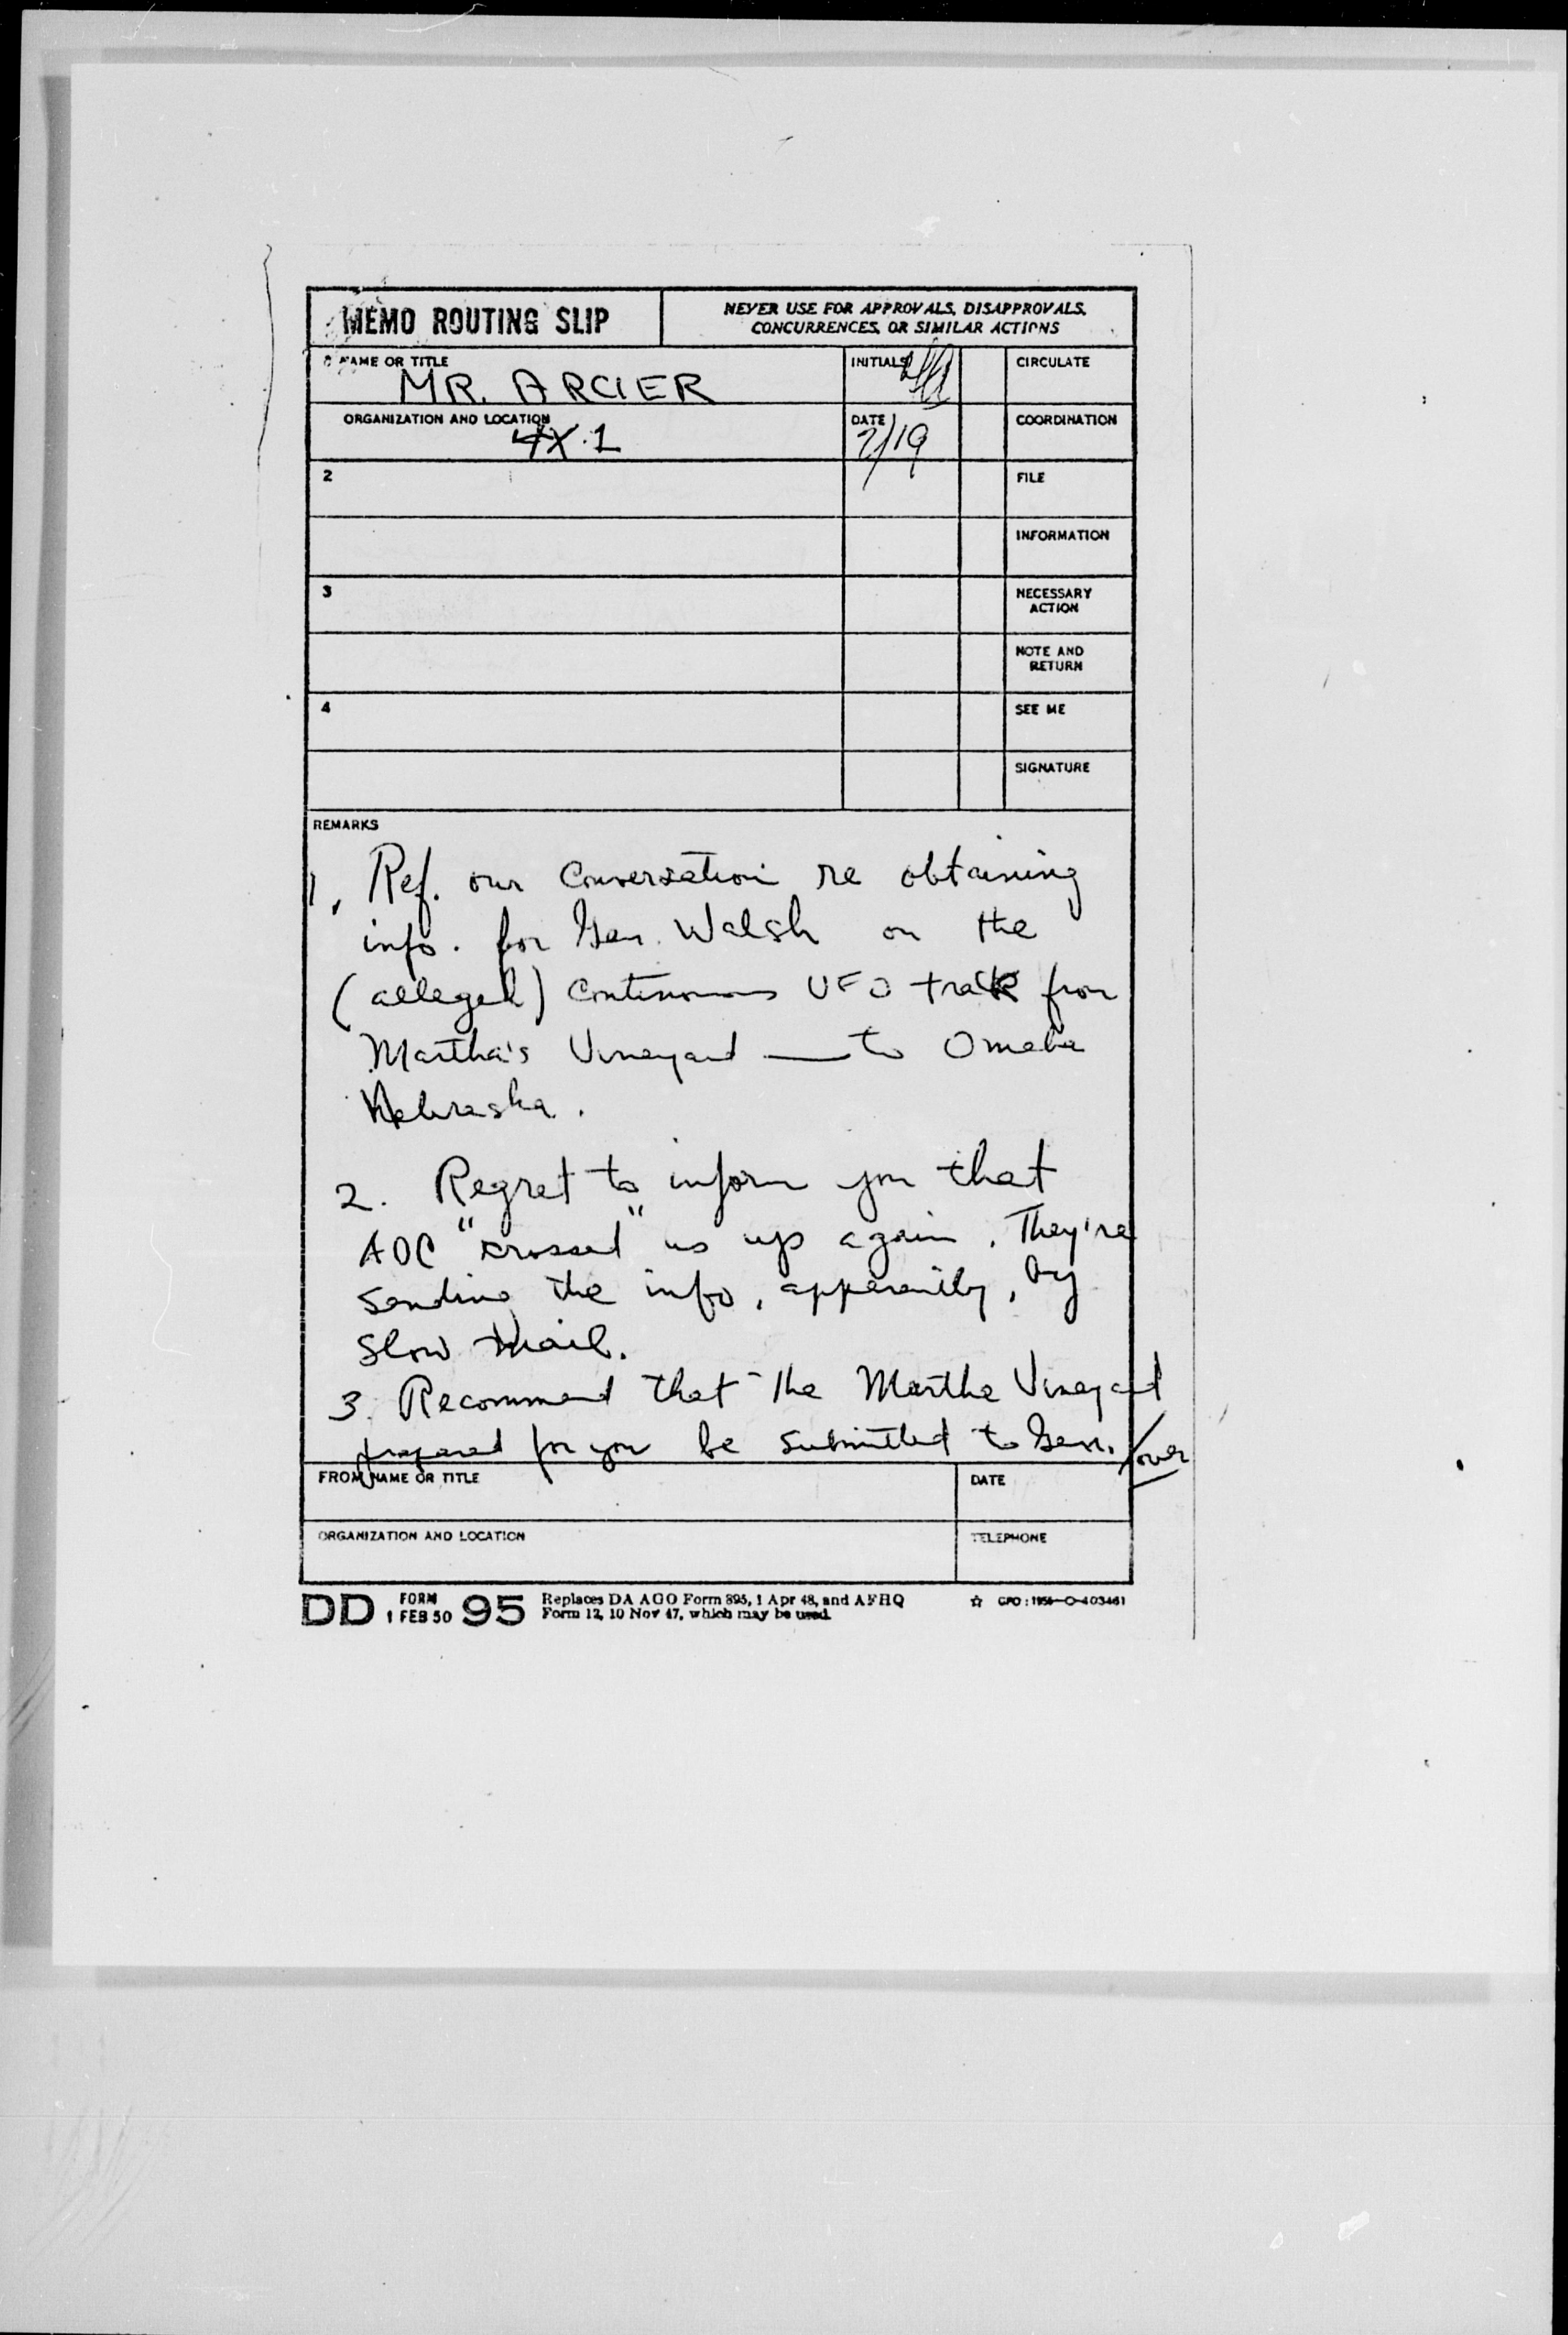 MEMO ROUTING SLIP
NEVER USE FOR APPROVALS, DISAPPROVALS,
CONCURRENCES, OR SIMILAR ACTIONS
NAME OR TITLE
MR. ARCIER
INITIALS
CIRCULATE
ORGANIZATION AND LOCATION
4X.1
DATE
2/19
COORDINATION
2
FILE
INFORMATION
3
NECESSARY
ACTION
NOTE AND
RETURN
4
SEE ME
SIGNATURE
REMARKS
1. Ref. our conversation re obtaining
info. for Gen. Walsh on the
(alleged) continuous UFO track from
Martha's Vineyard — to Omaha
Nebraska.
2. Regret to inform you that
ADC "crossed" us up again. They're
sending the info, apparently, by
slow mail.
3. Recommend that the Martha Vineyard
prepared for you be submitted to Gen.
over
FROM NAME OR TITLE
DATE
ORGANIZATION AND LOCATION
TELEPHONE
DD FORM 1 FEB 50 95
Replaces DA AGO Form 895, 1 Apr 48, and AFHQ
Form 12, 10 Nov 47, which may be used.
☆ GPO : 1956—O-403461